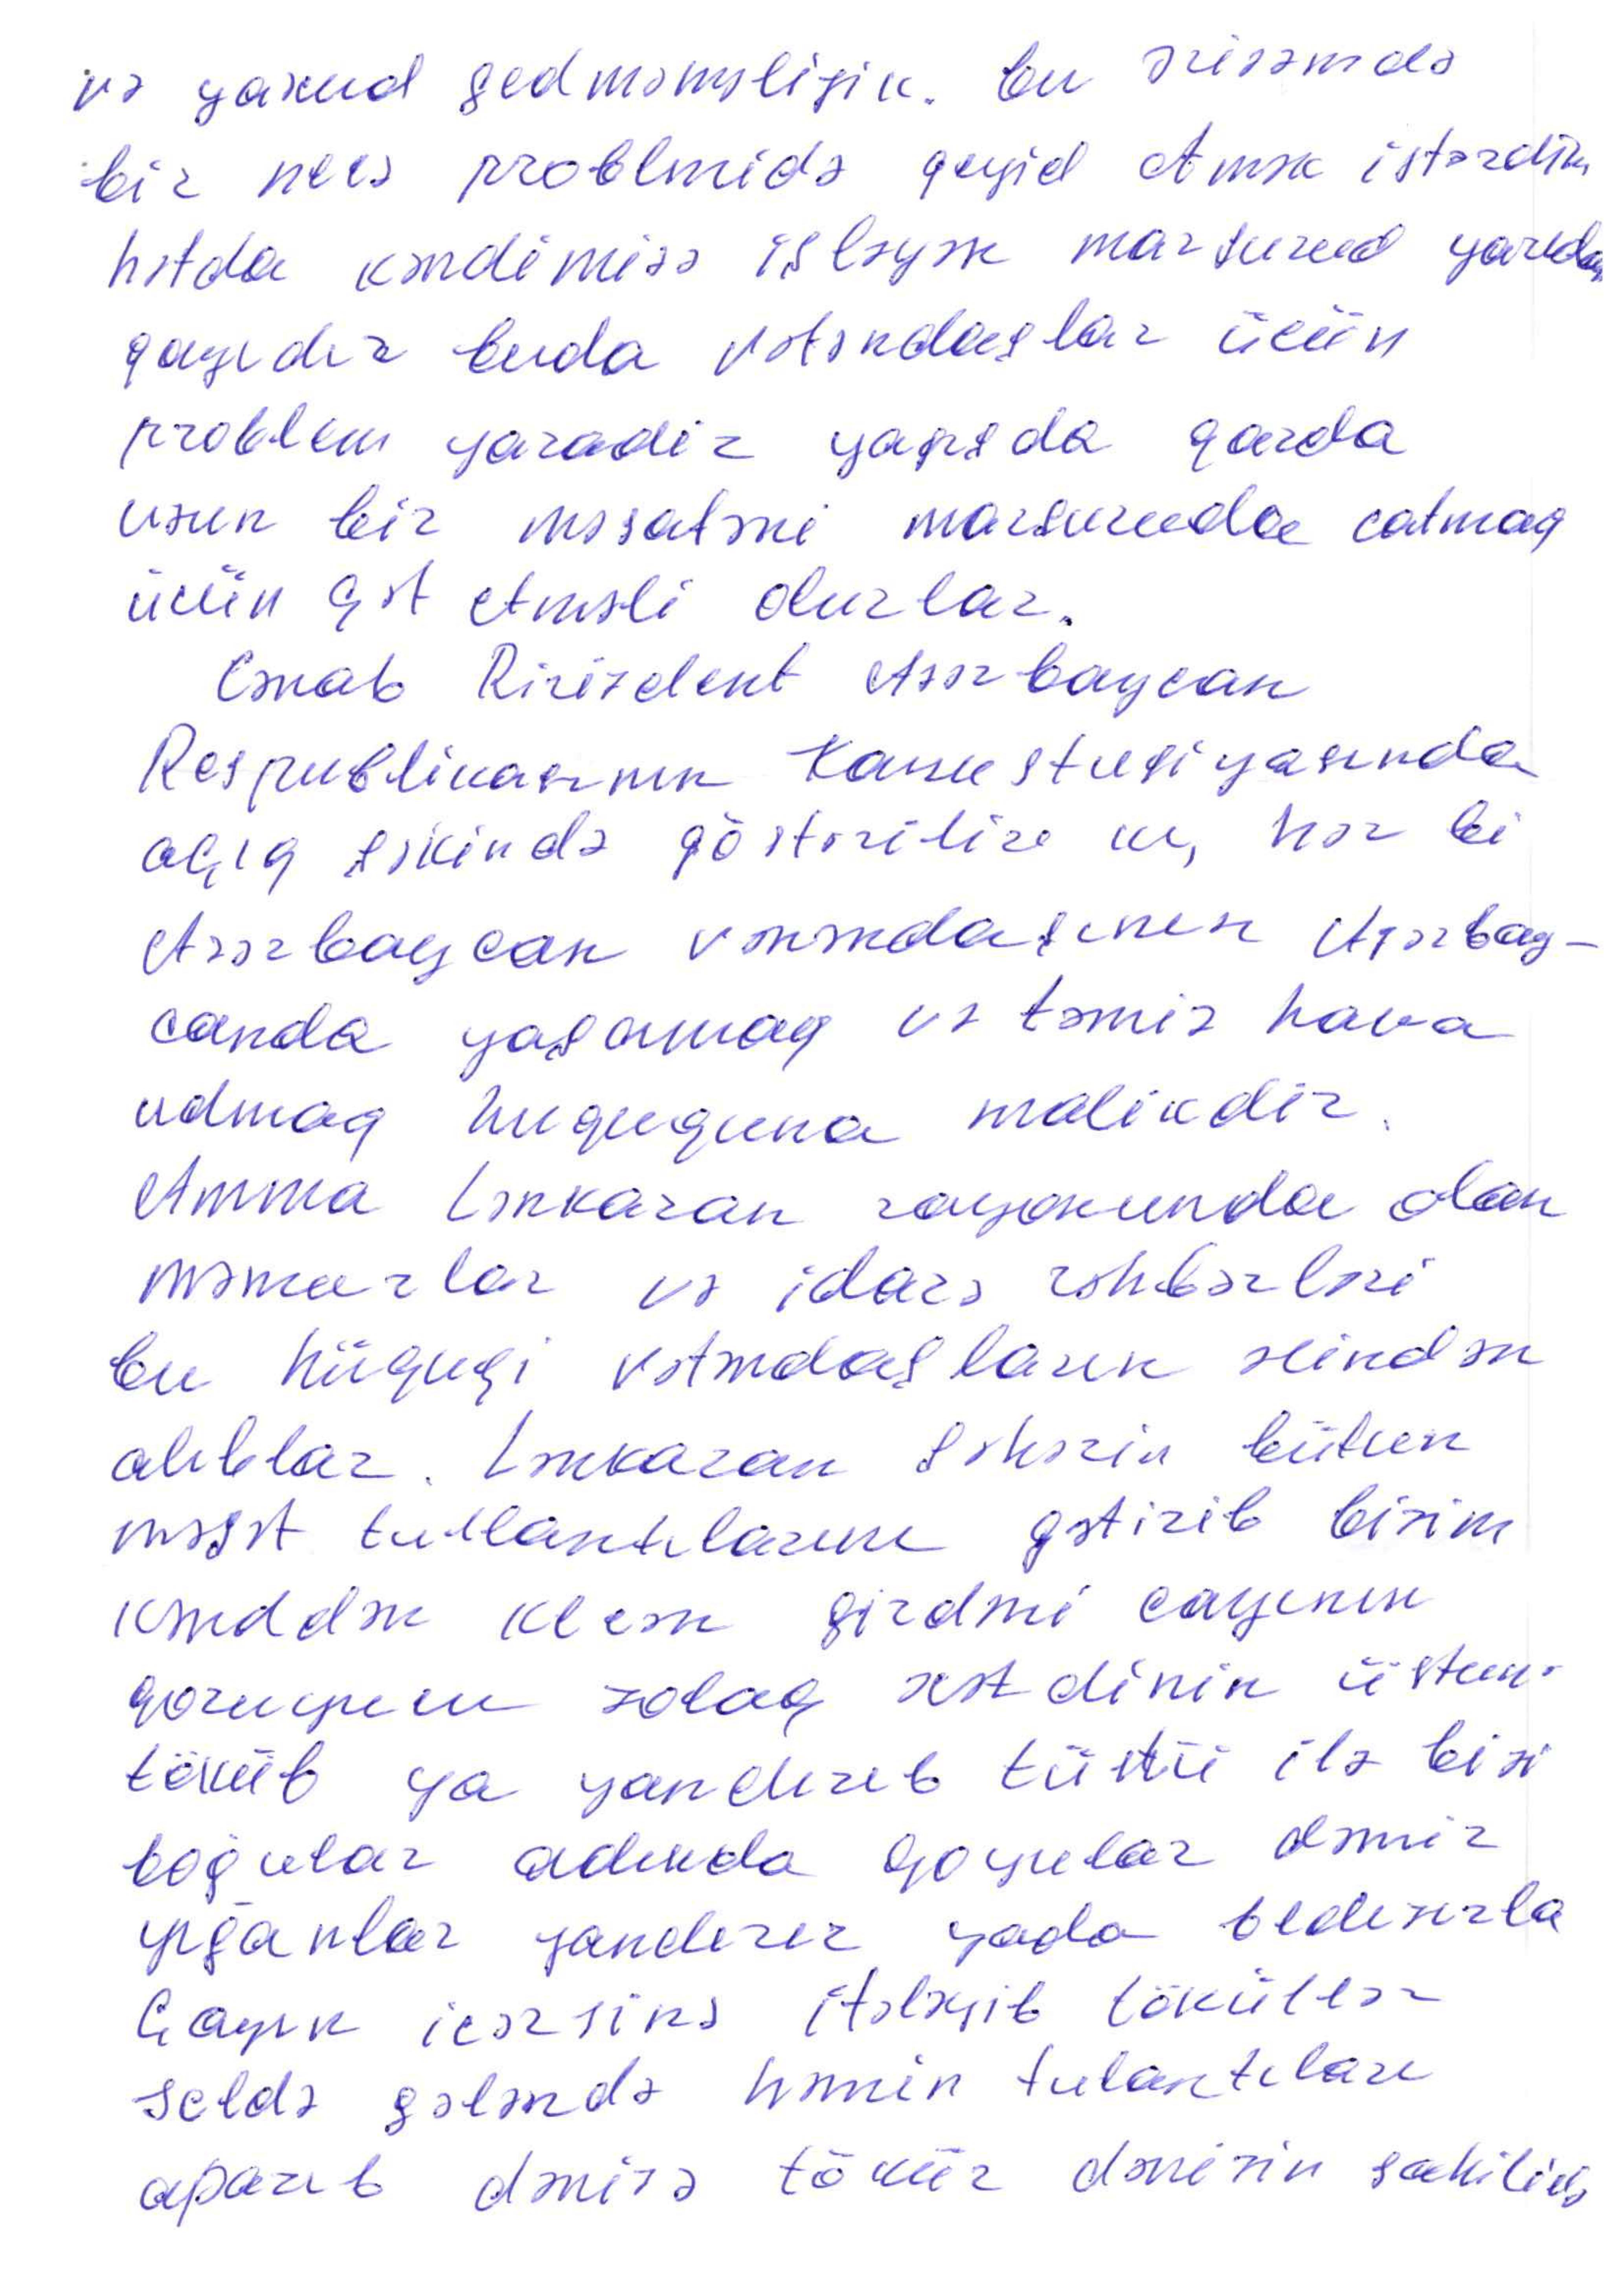 və yaxud gedməməliyik. bu ərizəmdə
bir necə problmidə qeyid etmək istərdim
hətda kəndimizə işləyən marşurud yarıdan
qayıdır buda vətəndaşlar üçün
problem yaradir yağışda qarda
uzun bir məsafəni marşuruda catmaq
üçün qət etməli olurlar.
Cənab Pirizdent Azərbaycan
Respublikasının Kanustusiyasında
açıq şəkində göstərilire ki, hər bi
Azərbaycan vənəndaşının Azərbay-
canda yaşamaq və təmiz hava
udmaq huququna malikdir.
Amma Lənkaran rayonunda olan
məmurlar və idarə rəhbərləri
bu hüquqi vətəndaşların əlindən
alıblar. Lənkaran şəhərin bütün
məişət tullantılarını gətirib bizim
kənddən kecən girdəni cayının
qoruyucu zolaq xət dinin üstünə
töküb ya yandırıb tüstü ilə bizi
boğular adında qoyular dəmir
yığanlar yandırır yada bldızırla
Çayın icərsinə itələyib tökülər
seldə gələndə həmin tulantıları
aparıb dənizə tökür dənizin sahilidə